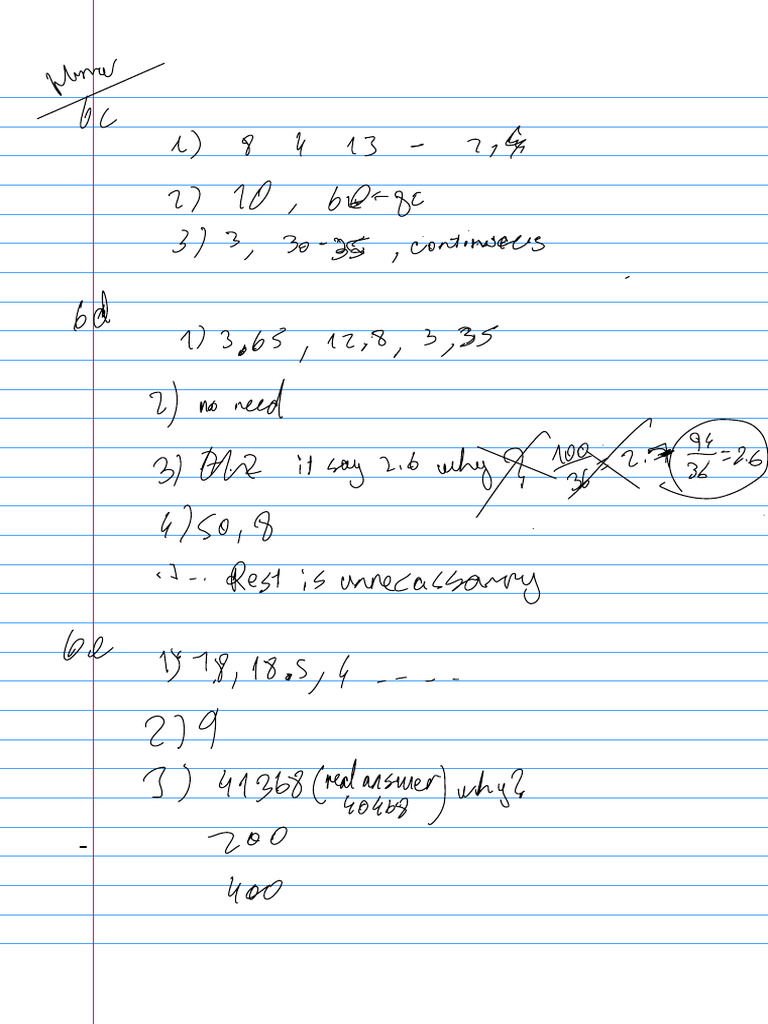 6c
1) 8 4 13 - 2,
2) 10, 60-80
3) 3, 30-35, continuous
6d
1) 3.65, 12,8, 3,35
2) no need
3) it say 2.6 why 100/36 = 2.7 94/36 = 2.6
4) 50, 8
... Rest is unnecassarry
6e
1) 18, 18.5, 4 - - - -
2) 9
3) 41368 (real answer 40468) why?
- 200
400